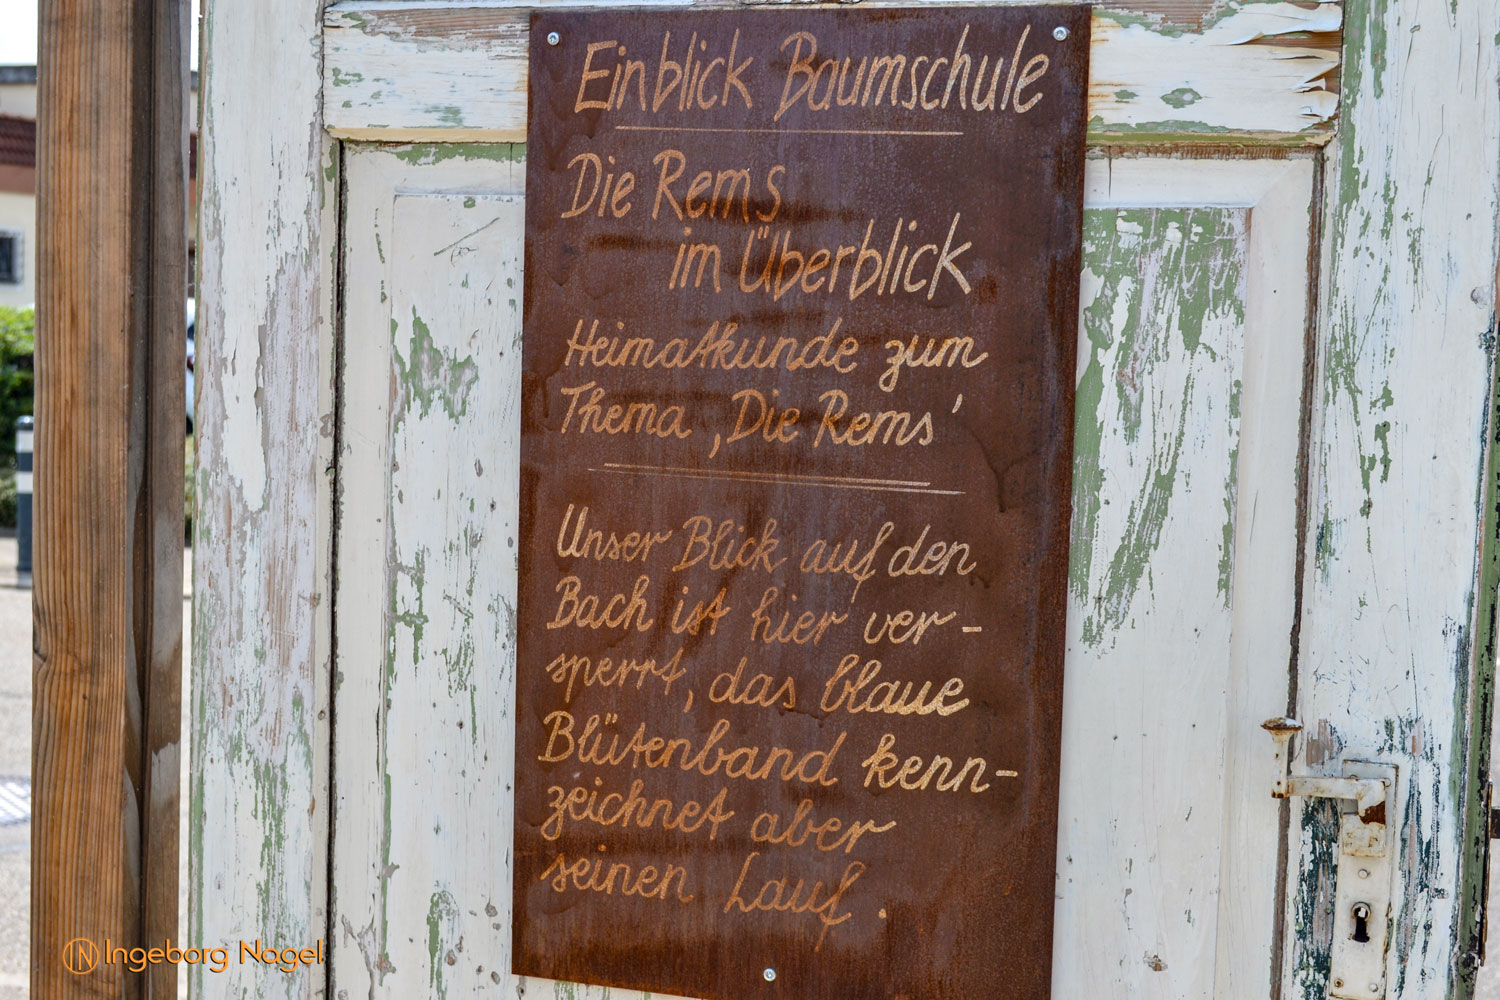 Einblick Baumschule
Die Rems
im Überblick
Heimatkunde zum
Thema ‚Die Rems'
Unser Blick auf den
Bach ist hier ver-
sperrt, das blaue
Blütenband kenn-
zeichnet aber
seinen Lauf.
IN Ingeborg Nagel